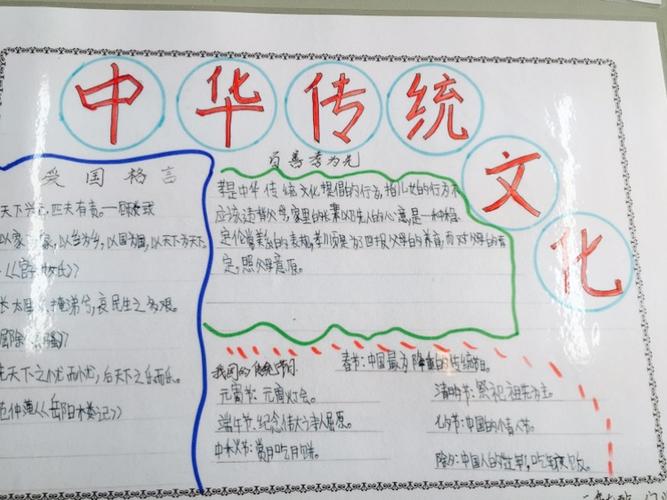 中华传统文化
爱国格言
天下兴亡,匹夫有责。——顾炎武
以家为家,以乡为乡,以国为国,以天下为天下。
长太息 掩涕兮,哀民生之多艰。
先天下之忧而忧,后天下之乐而乐。
范仲淹《岳阳楼记》
百善孝为先
孝是中华传统文化提倡的行为,指儿女的行为不
应该违背父母,家里的长辈以及先人的心意,是一种稳
定伦常关系的表现,
定,照父母意愿。
我国的传统节日
春节:中国最为隆重的传统节日。
元宵节:元宵灯会。
清明节:祭祀祖先为主。
端午节:纪念伟大诗人屈原。
七夕节:中国的情人节。
中秋节:赏月吃月饼。
除夕:中国人的 吃年夜饭。